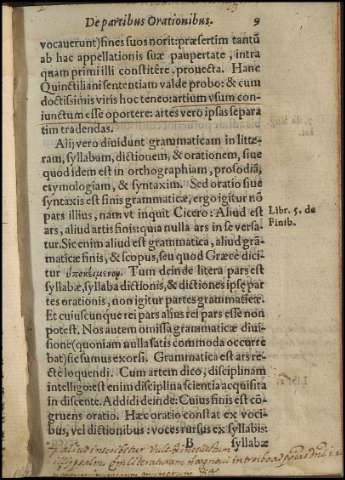 De partibus Orationibus. 9
vocauerunt) fines suos norit: præsertim tantũ
ab hac appellationis suæ paupertate, intra
quam primi illi constitêre, prouecta. Hanc
Quinctiliani sententiam valde probo: & cum
doctissimis viris hoc teneo: artium vsum con-
iunctum esse oportere: artes vero ipsas separa
tim tradendas.
Alij vero diuidunt grammaticam in litte-
ram, syllabam, dictionem, & orationem, siue
quod idem est in orthographiam, prosodiã,
etymologiam, & syntaxim. Sed oratio siue
syntaxis est finis grammaticæ, ergo igitur nõ
pars illius, nam vt inquit Cicero: Aliud est
ars, aliud artis finis: quia nulla ars in se versa-
tur. Sic enim aliud est grammatica, aliud grã-
maticæ finis, & scopus, seu quod Græcè dici-
tur ὑποκείμενον. Tum deinde litera pars est
syllabæ, syllaba dictionis, & dictiones ipsę par
tes orationis, non igitur partes grammaticæ.
Et cuiuscunque rei pars alius rei pars esse non
potest. Nos autem omissa grammaticæ diui-
sione (quoniam nulla satis commoda occurre
bat) sic sumus exorsi. Grammatica est ars re-
ctè loquendi. Cum artem dico, disciplinam
intelligo: est enim disciplina scientia acquisita
in discente. Addidi deinde: Cuius finis est cõ-
gruens oratio. Hæc oratio constat ex voci-
bus, vel dictionibus: voces rursus ex syllabis:
B syllabæ
Libr. 5. de
Finib.